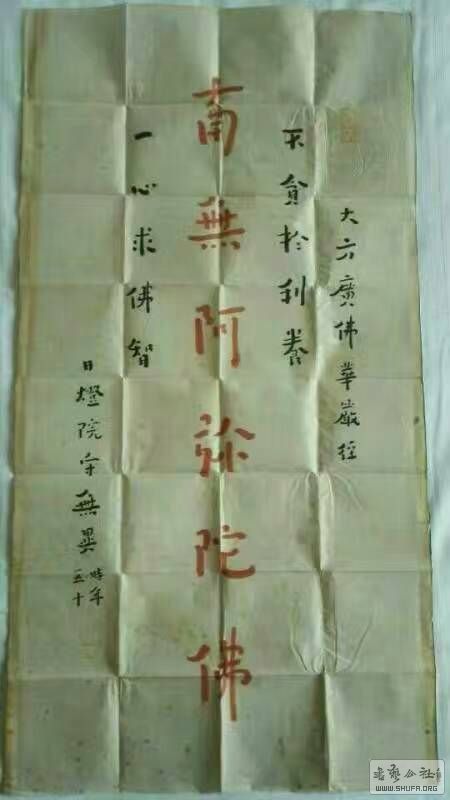 大方廣佛華嚴經
不貪於利養
南無阿弥陀佛
一心求佛智
日燈院守無異
時年
五十
WWW.SHUFA.ORG